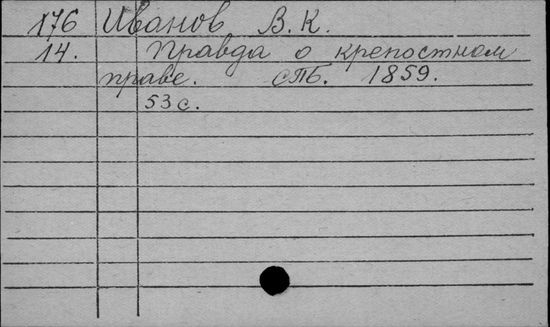 176 Иванов В.К.
14. Правда о крепостном
праве. СПБ. 1859.
53 с.